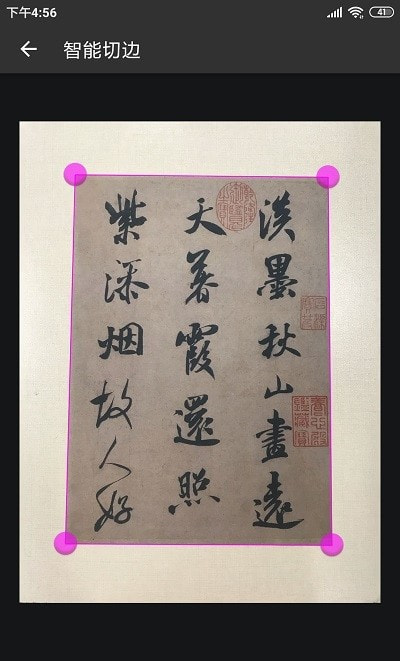 下午4:56
41
智能切边
淡墨秋山畫遠
天暮霞還照
紫添烟故人好